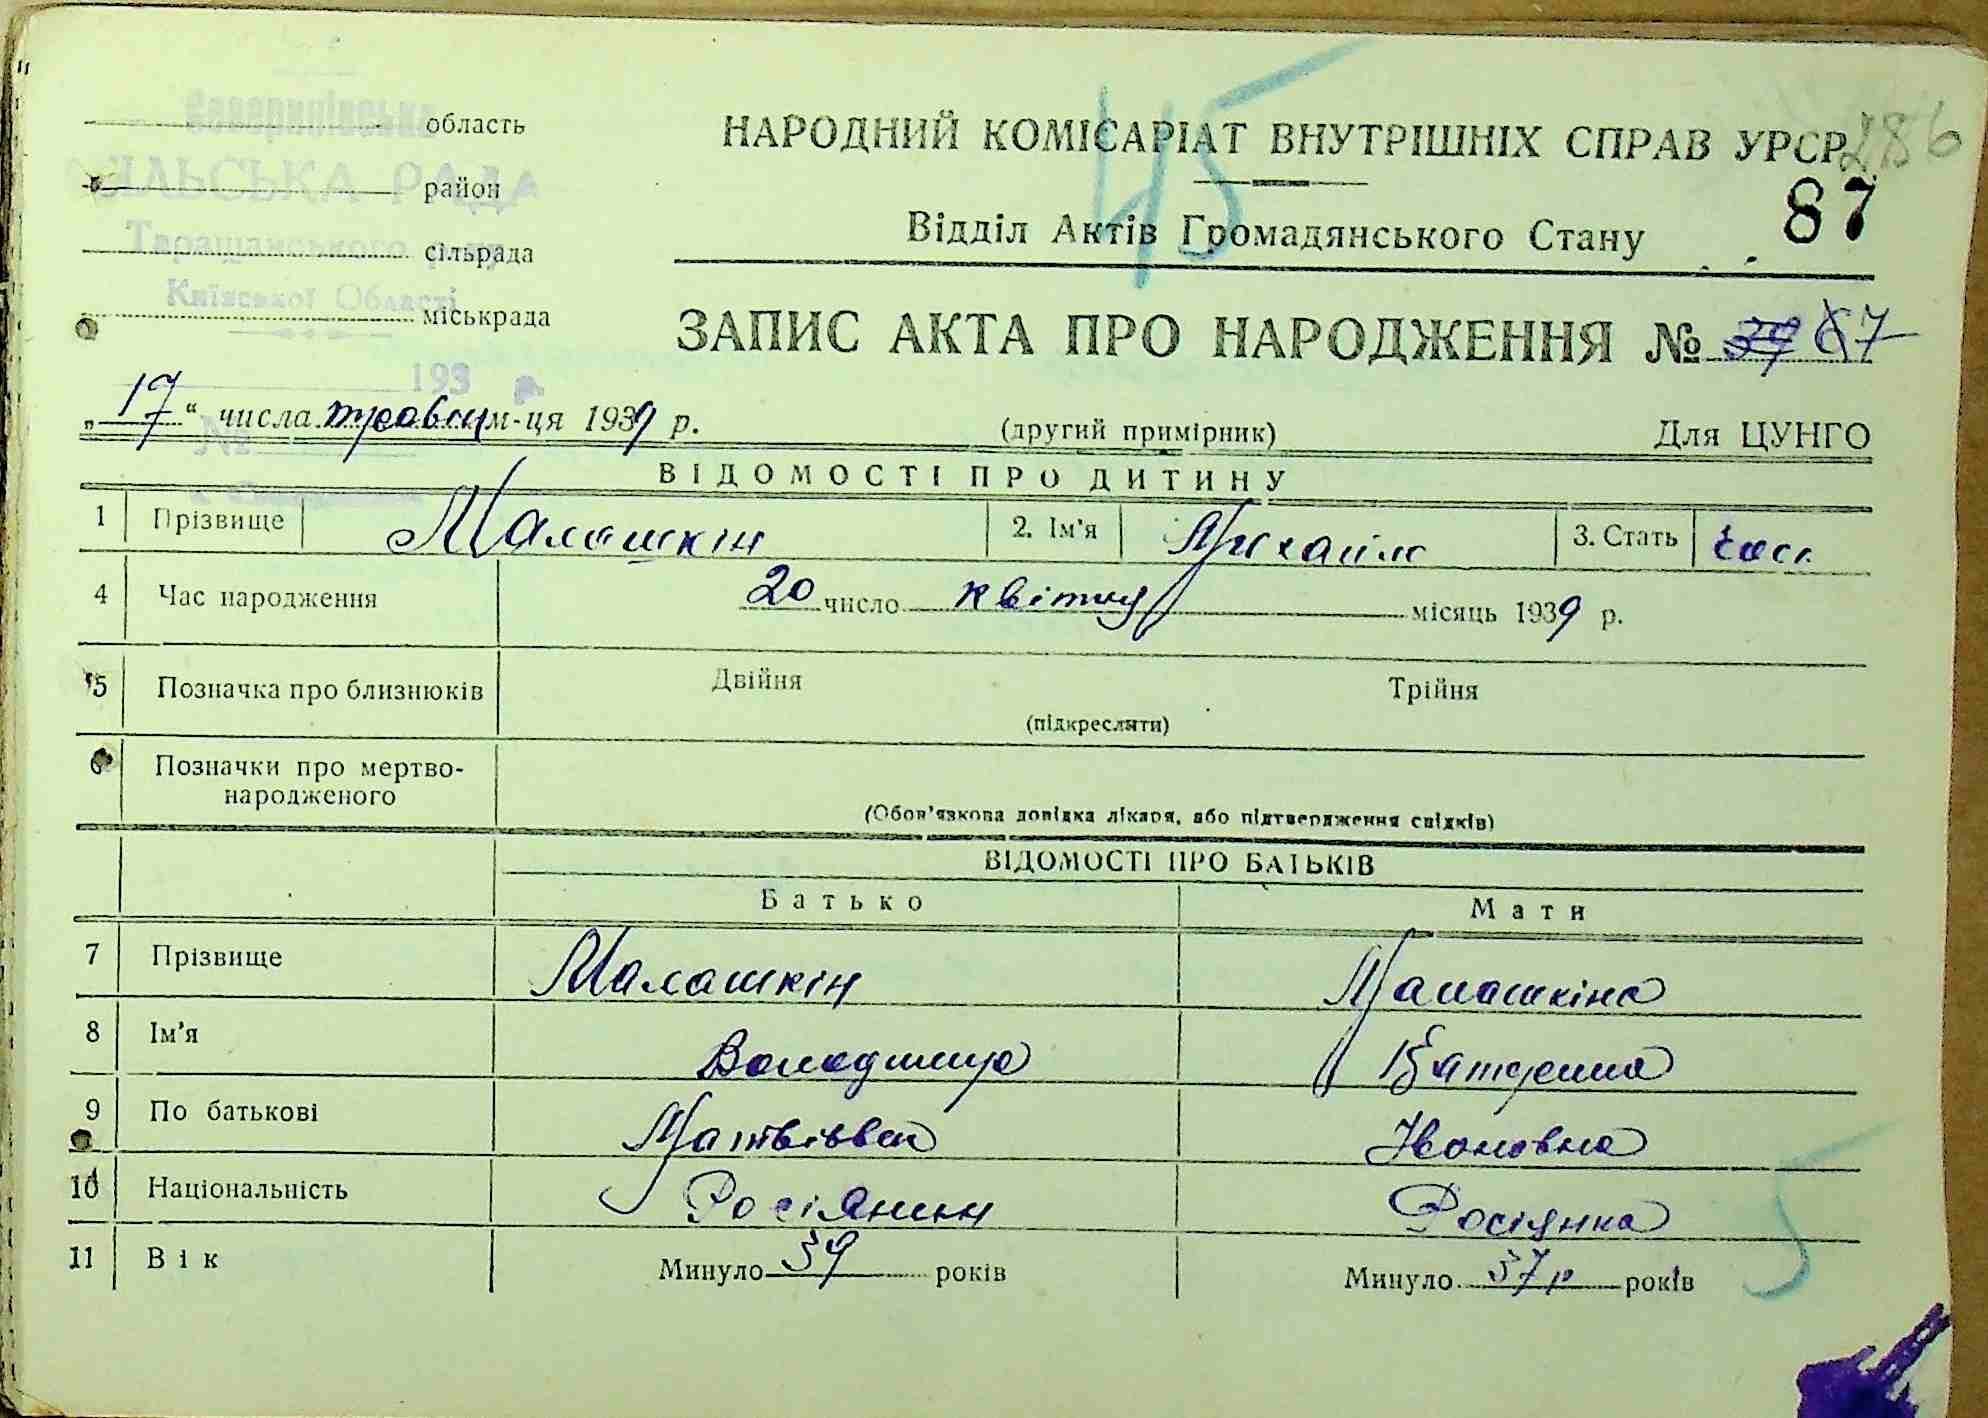 45
286
область
СІЛЬСЬКА РАДА
район
Таращанського р-ну
сільрада
Київської Області
міськрада
193 р.
№
НАРОДНИЙ КОМІСАРІАТ ВНУТРІШНІХ СПРАВ УРСР
87
Відділ Актів Громадянського Стану
ЗАПИС АКТА ПРО НАРОДЖЕННЯ № 39 67
„17“ числа травня м-ця 1939 р. (другий примірник) Для ЦУНГО
ВІДОМОСТІ ПРО ДИТИНУ
1 Прізвище Малашкін 2. Ім'я Михайло 3. Стать чол.
4 Час народження 20 число квітня місяць 1939 р.
5 Позначка про близнюків Двійня Трійня
(підкреслити)
6 Позначки про мертво-
народженого
(Обов'язкова довідка лікаря, або підтвердження свідків)
ВІДОМОСТІ ПРО БАТЬКІВ
Батько Мати
7 Прізвище Малашкін Малашкіна
8 Ім'я Володимир Катерина
9 По батькові Матвієвич Івановна
10 Національність Росіянин Росіянка
5
11 Вік Минуло 39 років Минуло 37 р років